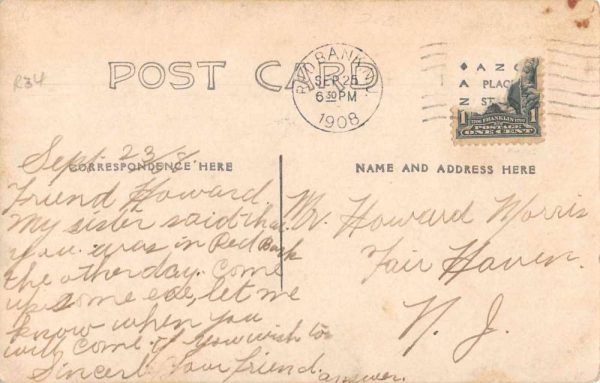 R34
POST CARD
RED BANK N.J.
SEP 25
6 30 PM
1908
A PLAC
N ST.
1706 FRANKLIN 1790
1 POSTAGE 1
ONE CENT
Sept. 23
CORRESPONDENCE HERE
Friend Howard,
My sister said that
you was in Red Bank
the other day. Come
up some eve, let me
know when you
will come. if you wish to
answer.
Sincerl Your friend.
NAME AND ADDRESS HERE
Mr Howard Morris
Fair Haven.
N. J.